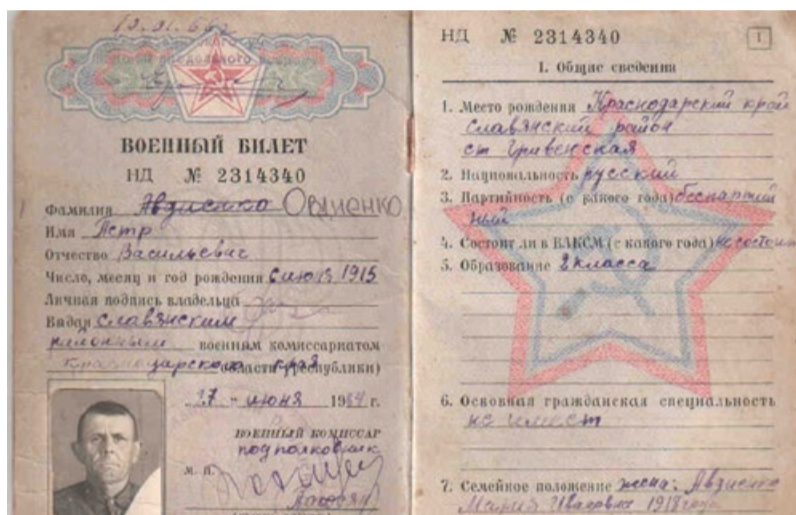 ВОЕННЫЙ БИЛЕТ
НД № 2314340
Фамилия Авдиенко Овдиенко
Имя Петр
Отчество Васильевич
Число, месяц и год рождения 6 июля 1915
Личная подпись владельца
Выдан Славянским
районным военным комиссариатом
Краснодарского края области (республики)
27 - июня 1964 г.
ВОЕННЫЙ КОМИССАР
подполковник
М. П.
НД № 2314340
1
I. Общие сведения
1. Место рождения Краснодарский край
Славянский район
ст Гривенская
2. Национальность русский
3. Партийность (с какого года) беспартий
ный
4. Состоит ли в ВЛКСМ (с какого года) не состоит
5. Образование 2 класса
6. Основная гражданская специальность
не имеет
7. Семейное положение жена: Авдиенко
Мария Ивановна 1918 года